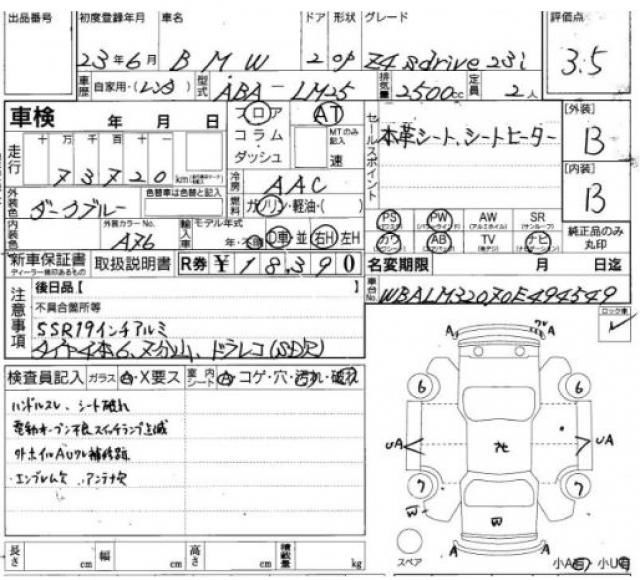 出品番号 初度登録年月 車名 ドア 形状 グレード 評価点
23年6月 BMW 2 OP Z4 sdrive 23i 3.5
車歴 自家用・(レンタ) 型式 ABA-LM25 排気量 2500cc 定員 2人
車検 年 月 日 フロア AT セールスポイント 本革シート、シートヒーター [外装] B
コラム MTのみ記入
ダッシュ 速
走行 十 万 千 百 十 一
73720 km
[内装] B
冷房 AAC
外装色 ダークブルー 色替車は色替と記入 燃料 ガソリン・軽油・( )
PS PW AW SR
純正品のみ丸印
内装色 外装カラーNo. A76 輸入車 モデル年式 年・不明 D車・並 右H 左H
カワ AB TV ナビ
新車保証書 取扱説明書 R券 ¥18,390 名変期限 月 日迄
ディーラー捺印あるもの
注意事項 後日品【 】 車台No. WBALM32070E494549
不具合箇所等
SSR19インチアルミ ロック車
検査員記入 ガラス A・X要ス 室内シート A・コゲ・穴・汚れ・破れ
ハンドルスレ、シート破れ
電動オープン不良スイッチランプ点滅
外ホイルAUタレ補修跡
・エンブレム欠 ・アンテナ欠
A A
6 6
UA UA
7 7
W W
A A
スペア 小A有 小U有
長さ cm 幅 cm 高さ cm 積載量 kg